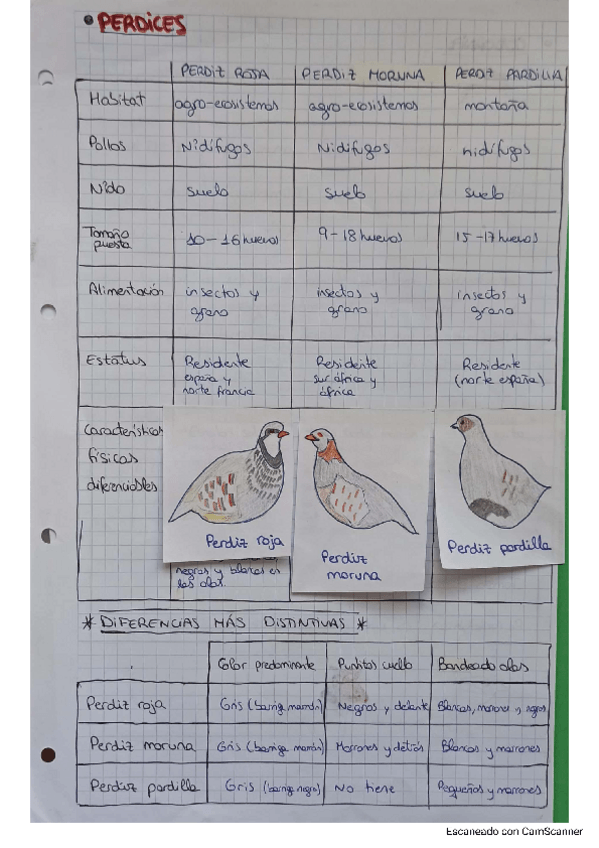 • PERDICES
PERDIZ ROJA PERDIZ MORUNA PERDIZ PARDILLA
Habitat agro-ecosistemas agro-ecosistemas montaña
Pollos Nidífugos Nidífugos nidífugos
Nido suelo suelo suelo
Tamaño puesta 10-16 huevos 9-18 huevos 15-17 huevos
Alimentación insectos y grano insectos y grano insectos y grano
Estatus Residente españa y norte francia Residente sur áfrica y áfrica Residente (norte españa)
Características
físicas
diferenciables
Perdiz roja
Perdiz moruna
Perdiz pardilla
negras y blancas en
las alas.
* DIFERENCIAS MÁS DISTINTIVAS *
Color predominante Puntitos cuello Bandeado alas
Perdiz roja Gris (barriga marrón) Negros y delante Blancas, marrones y negros
Perdiz moruna Gris (barriga marrón) Marrones y detrás Blancas y marrones
Perdiz pardilla Gris (barriga negra) No tiene Pequeños y marrones
Escaneado con CamScanner